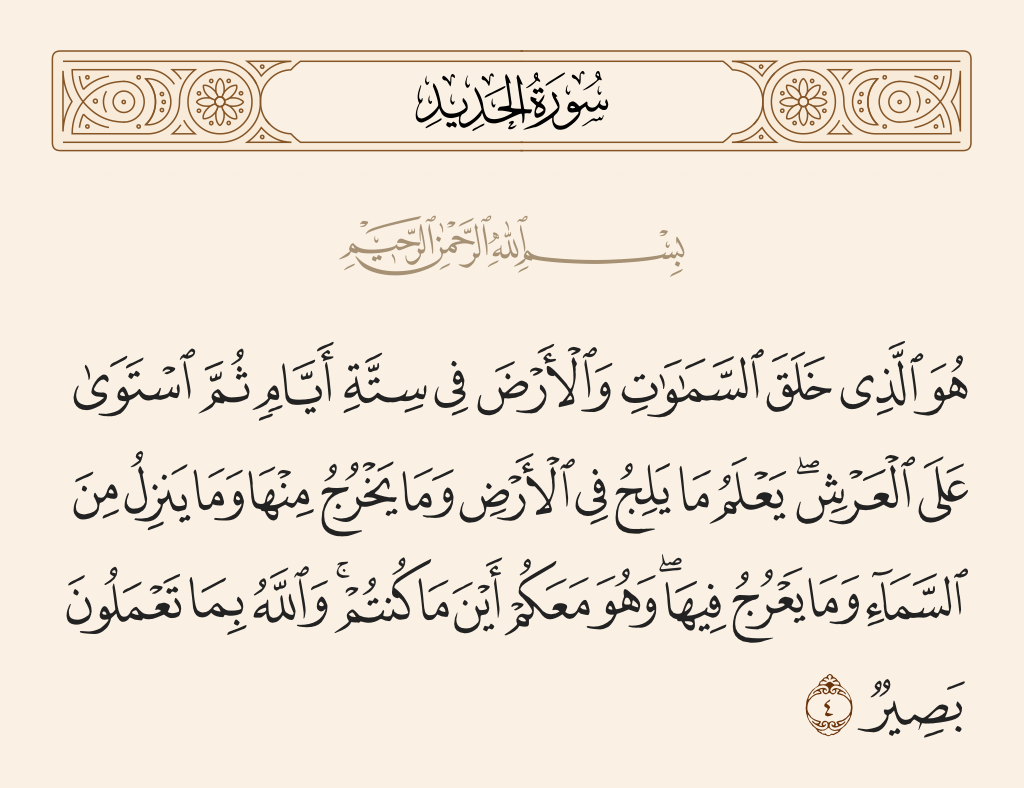 سُورَةُ الحَدِيدِ
بِسْمِ ٱللَّهِ ٱلرَّحْمَٰنِ ٱلرَّحِيمِ
هُوَ ٱلَّذِى خَلَقَ ٱلسَّمَٰوَٰتِ وَٱلْأَرْضَ فِى سِتَّةِ أَيَّامٍ ثُمَّ ٱسْتَوَىٰ
عَلَى ٱلْعَرْشِ ۖ يَعْلَمُ مَا يَلِجُ فِى ٱلْأَرْضِ وَمَا يَخْرُجُ مِنْهَا وَمَا يَنزِلُ مِنَ
ٱلسَّمَآءِ وَمَا يَعْرُجُ فِيهَا ۖ وَهُوَ مَعَكُمْ أَيْنَ مَا كُنتُمْ ۚ وَٱللَّهُ بِمَا تَعْمَلُونَ
بَصِيرٌ ٤